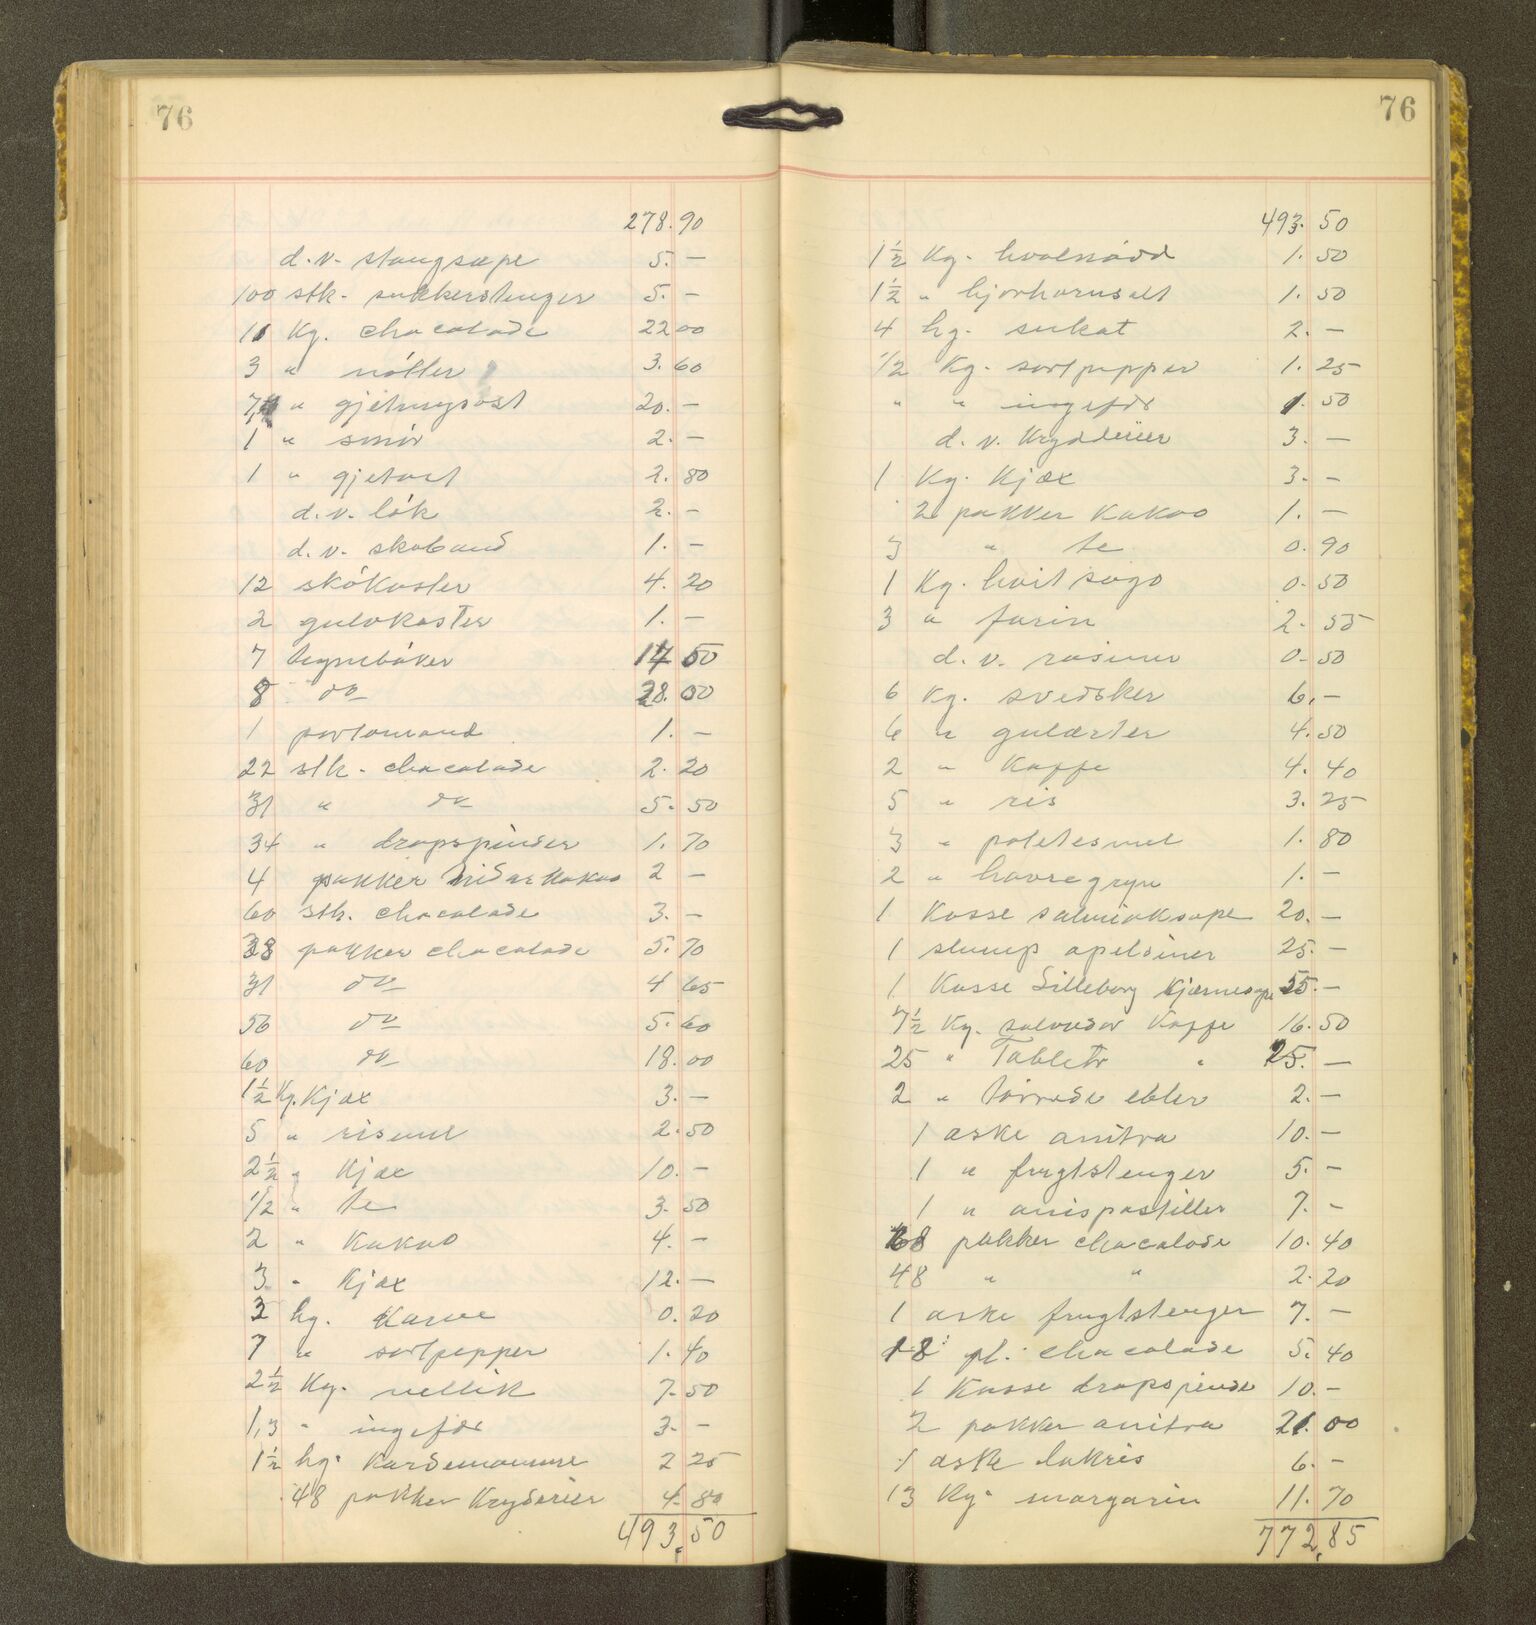 76
278.90
d.v. stangsæpe 5. —
100 stk. sukkerstenger 5. —
11 Kg. chocolade 22 00
3 " nötter 3.60
7,4 " gjetmysost 20. —
1 " smör 2. —
1 " gjetost 2.80
d.v. lök 2. —
d.v. skoband 1. —
12 skókoster 4.20
2 gulvkoster 1. —
7 tegnebóker 14 50
8 do 28.00
1 portomoned 1. —
22 stk. chocolade 2.20
31 " do 5.50
34 " dropspinder 1.70
4 pakker Nidar Kakao 2 —
60 stk. chocolade 3. —
38 pakker chocolade 5.70
31 do 4 65
56 do 5.60
60 do 18.00
1½ Kg. Kjæx 3. —
5 " rismel 2.50
2½ " Kjæx 10. —
1/2 " te 3.50
2 " Kakao 4. —
3 " Kjæx 12. —
3 hg. Karve 0.20
7 " sortpepper 1.40
2½ Kg. nellik 7.50
1,3 " ingefær 3. —
1½ hg. Kardemomme 2 25
48 pakker Kryderier 4.80
493,50
76
493.50
1½ Kg. hvalnódd 1.50
1½ " hjorhornsalt 1.50
4 hg. sukat 2. —
1/2 Kg. sortpepper 1.25
" " ingefær 1.50
d.v. Krydderier 3. —
1 Kg. Kjæx 3. —
2 pakker Kakao 1. —
3 " te 0.90
1 Kg. hvit sago 0.50
3 " farin 2.55
d.v. rosiner 0.50
6 Kg. svedsker 6. —
6 " gulærter 4.50
2 " Kaffe 4.40
5 " ris 3.25
3 " potetesmel 1.80
2 " havregryn 1. —
1 Kasse salmiaksæpe 20. —
1 slump apelsiner 25. —
1 Kasse Lilleborg Kjærnesæpe 35. —
7½ Kg. salvador Kaffe 16.50
25 " Tabletr " 25. —
2 " törrede ebler 2. —
1 æske anitra 10. —
1 " frugtstenger 5. —
1 " anispastiller 7. —
68 pakker chocolade 10.40
48 " " 2.20
1 æske frugtstenger 7. —
18 pl. chocolade 5.40
1 Kasse dropspinde 10. —
2 pakker anitra 21.00
1 æske lakris 6. —
13 Kg. margarin 11.70
772,85